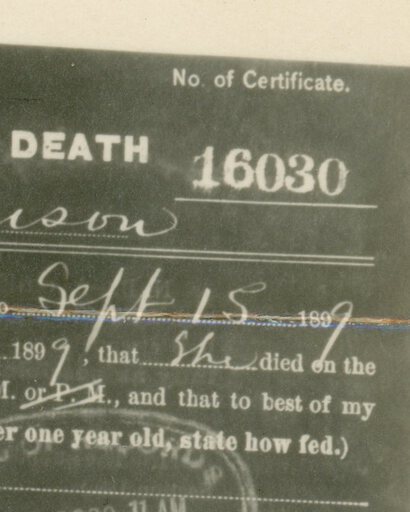 No. of Certificate.
DEATH
16030
Sept 15 1899
1899, that She died on the
M. or P. M., and that to best of my
er one year old, state how fed.)
11 AM